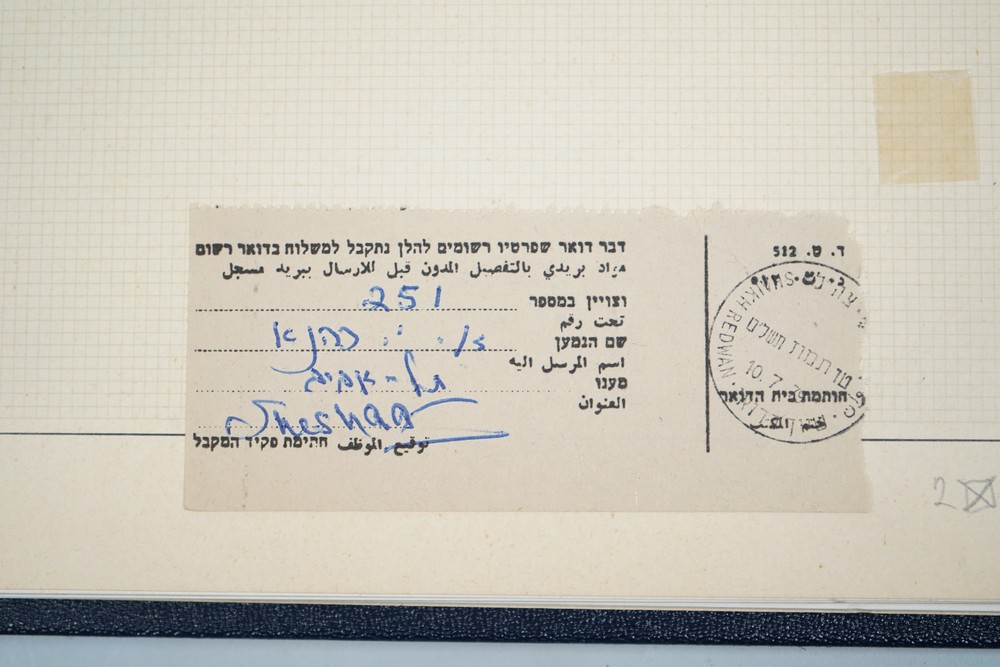 דבר דואר שפרטיו רשומים להלן נתקבל למשלוח בדואר רשום
مواد بريدي بالتفصيل المدون قبل للارسال ببريد مسجل
וצויין במספר 251
تحت رقم
שם הנמען כהנא
اسم المرسل اليه
מענו תל-אביב
العنوان
توقيع الموظف חתימת פקיד המקבל
ד. ט. 512
SHAIKH REDWAN
תמוז תשל״ט
10.7.79
חותמת בית הדואר
ختم
2